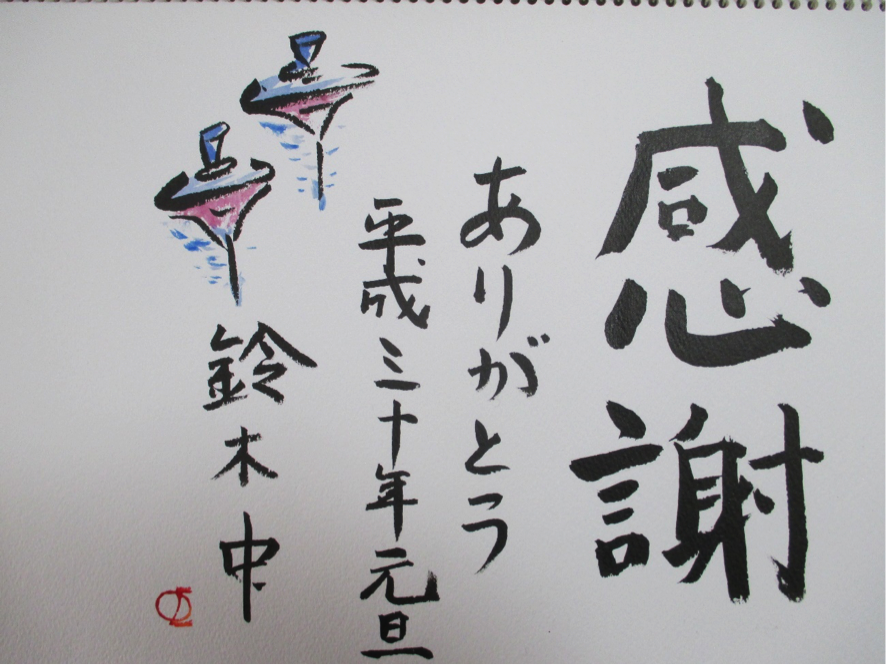 感謝
ありがとう
平成三十年元旦
鈴木